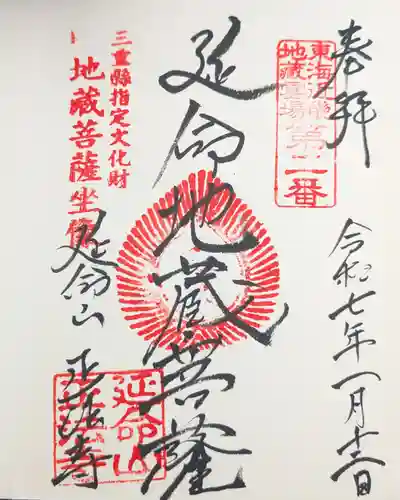 奉拝
東海近畿
地蔵霊場
第二番
令和七年一月十三日
延命地蔵菩薩
三重縣指定文化財
地蔵菩薩坐像
延命山
正法寺
延命山